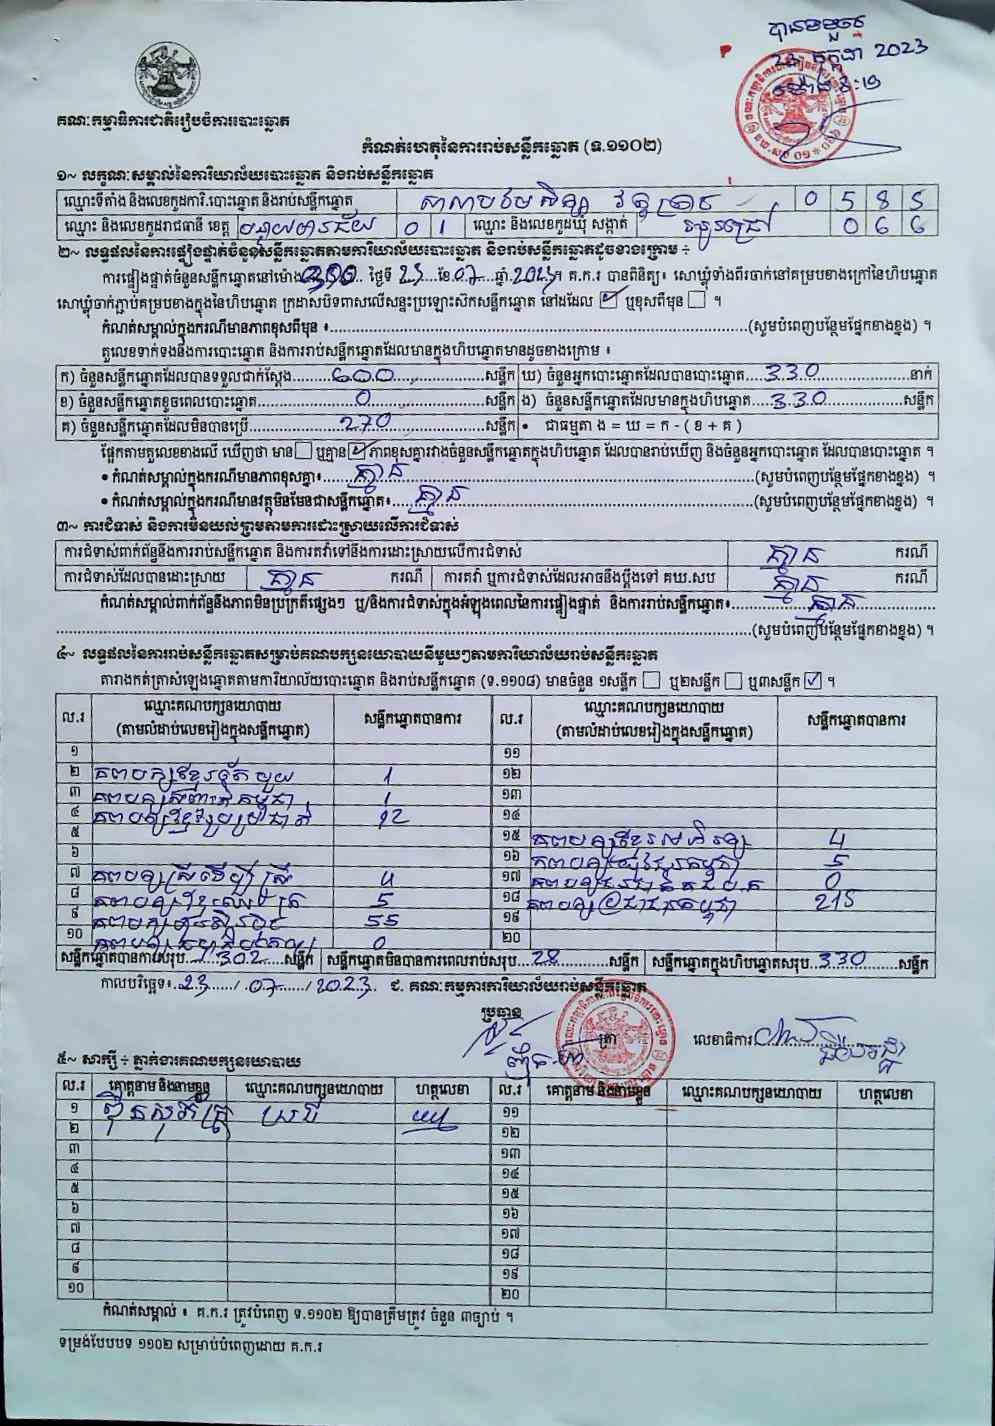 ២៤ កក្កដា 2023
គណៈកម្មាធិការជាតិរៀបចំការបោះឆ្នោត
កំណត់ហេតុនៃការរាប់សន្លឹកឆ្នោត (ទ.១១០២)
១~ លក្ខណៈសម្គាល់នៃការិយាល័យបោះឆ្នោត និងរាប់សន្លឹកឆ្នោត
ឈ្មោះទីតាំង និងលេខកូដការិ.បោះឆ្នោត និងរាប់សន្លឹកឆ្នោត 0 5 8 5
ឈ្មោះ និងលេខកូដរាជធានី ខេត្ត បន្ទាយមានជ័យ 0 1 ឈ្មោះ និងលេខកូដឃុំ សង្កាត់ 0 6 6
២~ លទ្ធផលនៃការផ្ទៀងផ្ទាត់ចំនួនសន្លឹកឆ្នោតតាមការិយាល័យបោះឆ្នោត និងរាប់សន្លឹកឆ្នោតដូចខាងក្រោម ÷
ការផ្ទៀងផ្ទាត់ចំនួនសន្លឹកឆ្នោតនៅម៉ោង ថ្ងៃទី 23 ខែ 07 ឆ្នាំ 2023 ។ គ.ក.រ បានពិនិត្យ៖ សោឃ្លុំទាំងពីរចាក់នៅគម្របខាងក្រៅនៃហិបឆ្នោត
សោឃ្លុំចាក់ភ្ជាប់គម្របខាងក្នុងនៃហិបឆ្នោត ក្រដាសបិទពាសលើសន្ទះប្រឡោះស៊កសន្លឹកឆ្នោត នៅដដែល ☑ ឬខុសពីមុន ☐ ។
កំណត់សម្គាល់ក្នុងករណីមានភាពខុសពីមុន ៖ (សូមបំពេញបន្ថែមផ្នែកខាងខ្នង) ។
តួលេខទាក់ទងនឹងការបោះឆ្នោត និងការរាប់សន្លឹកឆ្នោតដែលមានក្នុងហិបឆ្នោតមានដូចខាងក្រោម ៖
ក) ចំនួនសន្លឹកឆ្នោតដែលបានទទួលជាក់ស្តែង 600 សន្លឹក ឃ) ចំនួនអ្នកបោះឆ្នោតដែលបានបោះឆ្នោត 330 នាក់
ខ) ចំនួនសន្លឹកឆ្នោតខូចពេលបោះឆ្នោត 0 សន្លឹក ង) ចំនួនសន្លឹកឆ្នោតដែលមានក្នុងហិបឆ្នោត 330 សន្លឹក
គ) ចំនួនសន្លឹកឆ្នោតដែលមិនបានប្រើ 270 សន្លឹក • ជាធម្មតា ង = ឃ = ក - ( ខ + គ )
ផ្អែកតាមតួលេខខាងលើ ឃើញថា មាន ☐ ឬគ្មាន ☑ ភាពខុសគ្នារវាងចំនួនសន្លឹកឆ្នោតក្នុងហិបឆ្នោត ដែលបានរាប់ឃើញ និងចំនួនអ្នកបោះឆ្នោត ដែលបានបោះឆ្នោត ។
• កំណត់សម្គាល់ក្នុងករណីមានភាពខុសគ្នា៖ គ្មាន (សូមបំពេញបន្ថែមផ្នែកខាងខ្នង) ។
• កំណត់សម្គាល់ក្នុងករណីមានវត្ថុមិនមែនជាសន្លឹកឆ្នោត៖ គ្មាន (សូមបំពេញបន្ថែមផ្នែកខាងខ្នង) ។
៣~ ការជំទាស់ និងការមិនយល់ព្រមតាមការដោះស្រាយលើការជំទាស់
ការជំទាស់ពាក់ព័ន្ធនឹងការរាប់សន្លឹកឆ្នោត និងការតវ៉ាទៅនឹងការដោះស្រាយលើការជំទាស់ គ្មាន ករណី
ការជំទាស់ដែលបានដោះស្រាយ គ្មាន ករណី ការតវ៉ា ឬការជំទាស់ដែលអាចនឹងប្តឹងទៅ គឃ.សប គ្មាន ករណី
កំណត់សម្គាល់ពាក់ព័ន្ធនឹងភាពមិនប្រក្រតីផ្សេងៗ ឬ/និងការជំទាស់ក្នុងអំឡុងពេលនៃការផ្ទៀងផ្ទាត់ និងការរាប់សន្លឹកឆ្នោត៖ គ្មាន
(សូមបំពេញបន្ថែមផ្នែកខាងខ្នង) ។
៤~ លទ្ធផលនៃការរាប់សន្លឹកឆ្នោតសម្រាប់គណបក្សនយោបាយនីមួយៗតាមការិយាល័យរាប់សន្លឹកឆ្នោត
តារាងកត់ត្រាសំឡេងឆ្នោតតាមការិយាល័យបោះឆ្នោត និងរាប់សន្លឹកឆ្នោត (ទ.១១០៨) មានចំនួន ១សន្លឹក ☐ ឬ២សន្លឹក ☐ ឬ៣សន្លឹក ☑ ។
ល.រ ឈ្មោះគណបក្សនយោបាយ (តាមលំដាប់លេខរៀងក្នុងសន្លឹកឆ្នោត) សន្លឹកឆ្នោតបានការ ល.រ ឈ្មោះគណបក្សនយោបាយ (តាមលំដាប់លេខរៀងក្នុងសន្លឹកឆ្នោត) សន្លឹកឆ្នោតបានការ
១ ១១
២ គណបក្សខ្មែររួបរួម 1 ១២
៣ 1 ១៣
៤ 12 ១៤
៥ ១៥ 4
៦ ១៦ 5
៧ គណបក្សស្រីដើម្បីស្រី 4 ១៧ 0
៨ 5 ១៨ គណបក្សប្រជាជនកម្ពុជា 215
៩ គណបក្សហ្វ៊ុនស៊ិនប៉ិច 55 ១៩
១០ 0 ២០
សន្លឹកឆ្នោតបានការសរុប 302 សន្លឹក សន្លឹកឆ្នោតមិនបានការពេលរាប់សរុប 28 សន្លឹក សន្លឹកឆ្នោតក្នុងហិបឆ្នោតសរុប 330 សន្លឹក
កាលបរិច្ឆេទ៖ 23 / 07 / 2023 ជ. គណៈកម្មការការិយាល័យរាប់សន្លឹកឆ្នោត
ប្រធាន
ត្រា លេខាធិការ
៥~ សាក្សី ÷ ភ្នាក់ងារគណបក្សនយោបាយ
ល.រ គោត្តនាម និងនាមខ្លួន ឈ្មោះគណបក្សនយោបាយ ហត្ថលេខា ល.រ គោត្តនាម និងនាមខ្លួន ឈ្មោះគណបក្សនយោបាយ ហត្ថលេខា
១ ១១
២ ១២
៣ ១៣
៤ ១៤
៥ ១៥
៦ ១៦
៧ ១៧
៨ ១៨
៩ ១៩
១០ ២០
កំណត់សម្គាល់ ៖ គ.ក.រ ត្រូវបំពេញ ទ.១១០២ ឱ្យបានត្រឹមត្រូវ ចំនួន ៣ច្បាប់ ។
ទម្រង់បែបបទ ១១០២ សម្រាប់បំពេញដោយ គ.ក.រ